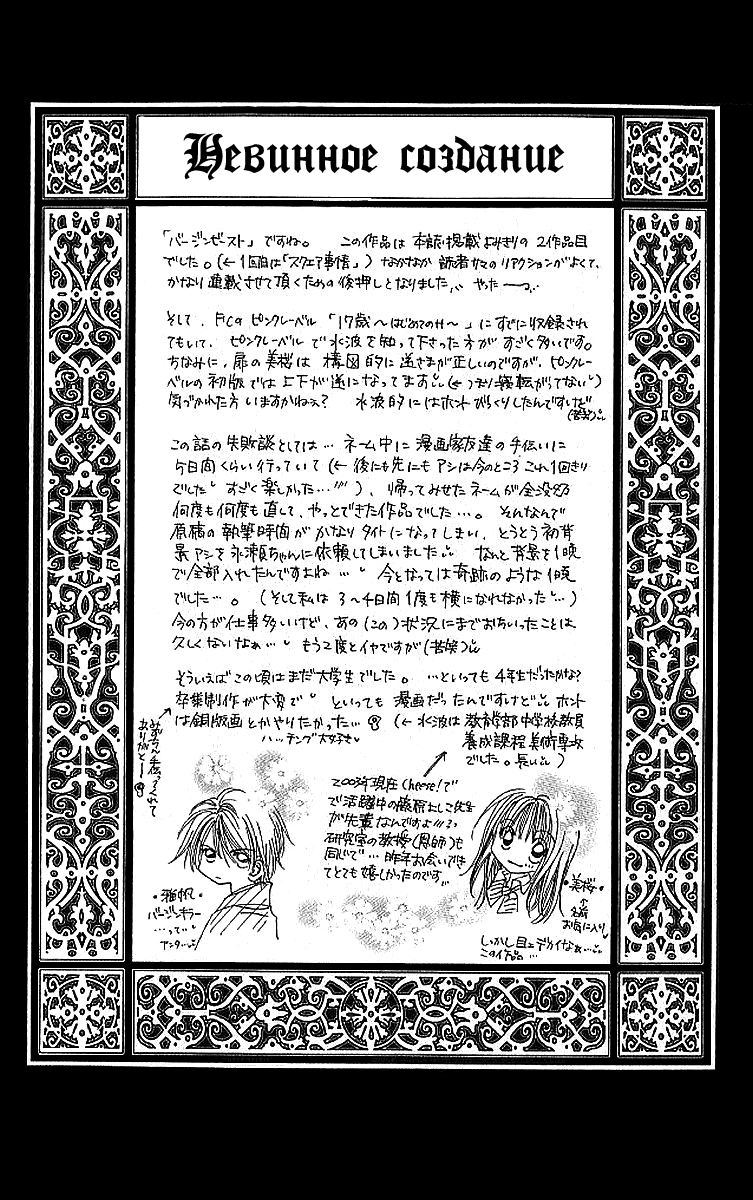 Невинное создание
「バージンビースト」ですね。 この作品は 本誌掲載 よみきりの 2作品目
でした。(←1回目は「スクエア事情」) なかなか 読者サマの リアクションがよくて、
かなり 連載させて頂くための後押しとなりました やったーっ
そして、FCの ピンクレーベル 「17歳～はじめてのH～」にすでに収録され
てもいて、ピンクレーベルで水波を知って下さった方が すごく多いです。
ちなみに、扉の美桜は 構図的に逆さまが正しいのですが、ピンクレー
ベルの初版では上下が逆になってます(←つまり 転がってない)
気づかれた方いますかねぇ? 水波的にはホント びっくりしたんですけど
(苦笑)
この話の失敗談としては… ネーム中に漫画家友達の手伝いに
5日間くらい行っていて(←後にも先にも アシは今のところ これ1回きり
でした すごく楽しかった…!!!)、帰ってみせたネームが全没
何度も何度も直して、やっとできた作品でした…。そんなんで
原稿の執筆時間が かなりタイトになってしまい、とうとう初背
景アシを 永瀬ちゃんに依頼してしまいました なんと背景を1晩
で全部入れたんですよね… 今となっては奇跡のような1晩
でした…。(そして私は 3～4日間1度も横になれなかった…)
今の方が仕事多いけど、あの(この)状況にまでおちいったことは
久しくないなぁ… もう2度とイヤですが(苦笑)
そういえばこの頃はまだ大学生でした。…といっても 4年生だったかな?
卒業制作が大変で といっても 漫画だったんですけど ホント
は銅版画とかやりたかった… (←水波は 教育学部中学校教員
養成課程美術専攻
でした。長い)
ハッチング大好き
手伝ってくれて
ありがとー
2003年現在Cheese!で
で活躍中の藤原よしこ先生
が先輩なんですよ!!!
研究室の教授(恩師)も
同じで… 昨年お会いでき
てとても嬉しかったのです
・雅帆・
バージンキラー
…って
アンタ…
・美桜・
↑
名前
お気に入り
しかし目ェデカイなぁ…
この作品…